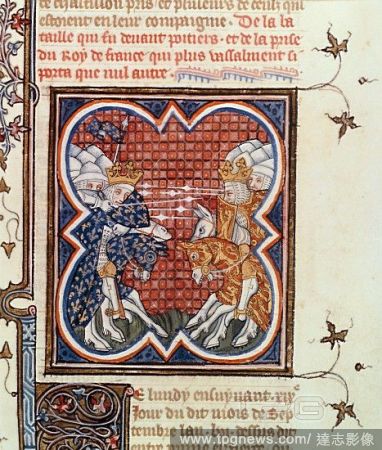 te chastillon pris, et plusieurs de ceulx qui
estoient en leur compaignie. De la ba
taille qui fu devant poitiers, et de la prise
du Roy de france qui plus vassalment si
porta que nul autre.
e lundy ensuyant xix
Jour du dit mois de Sep
tembre lan du dessus dit
G
www.tpgnews.com/達志影像